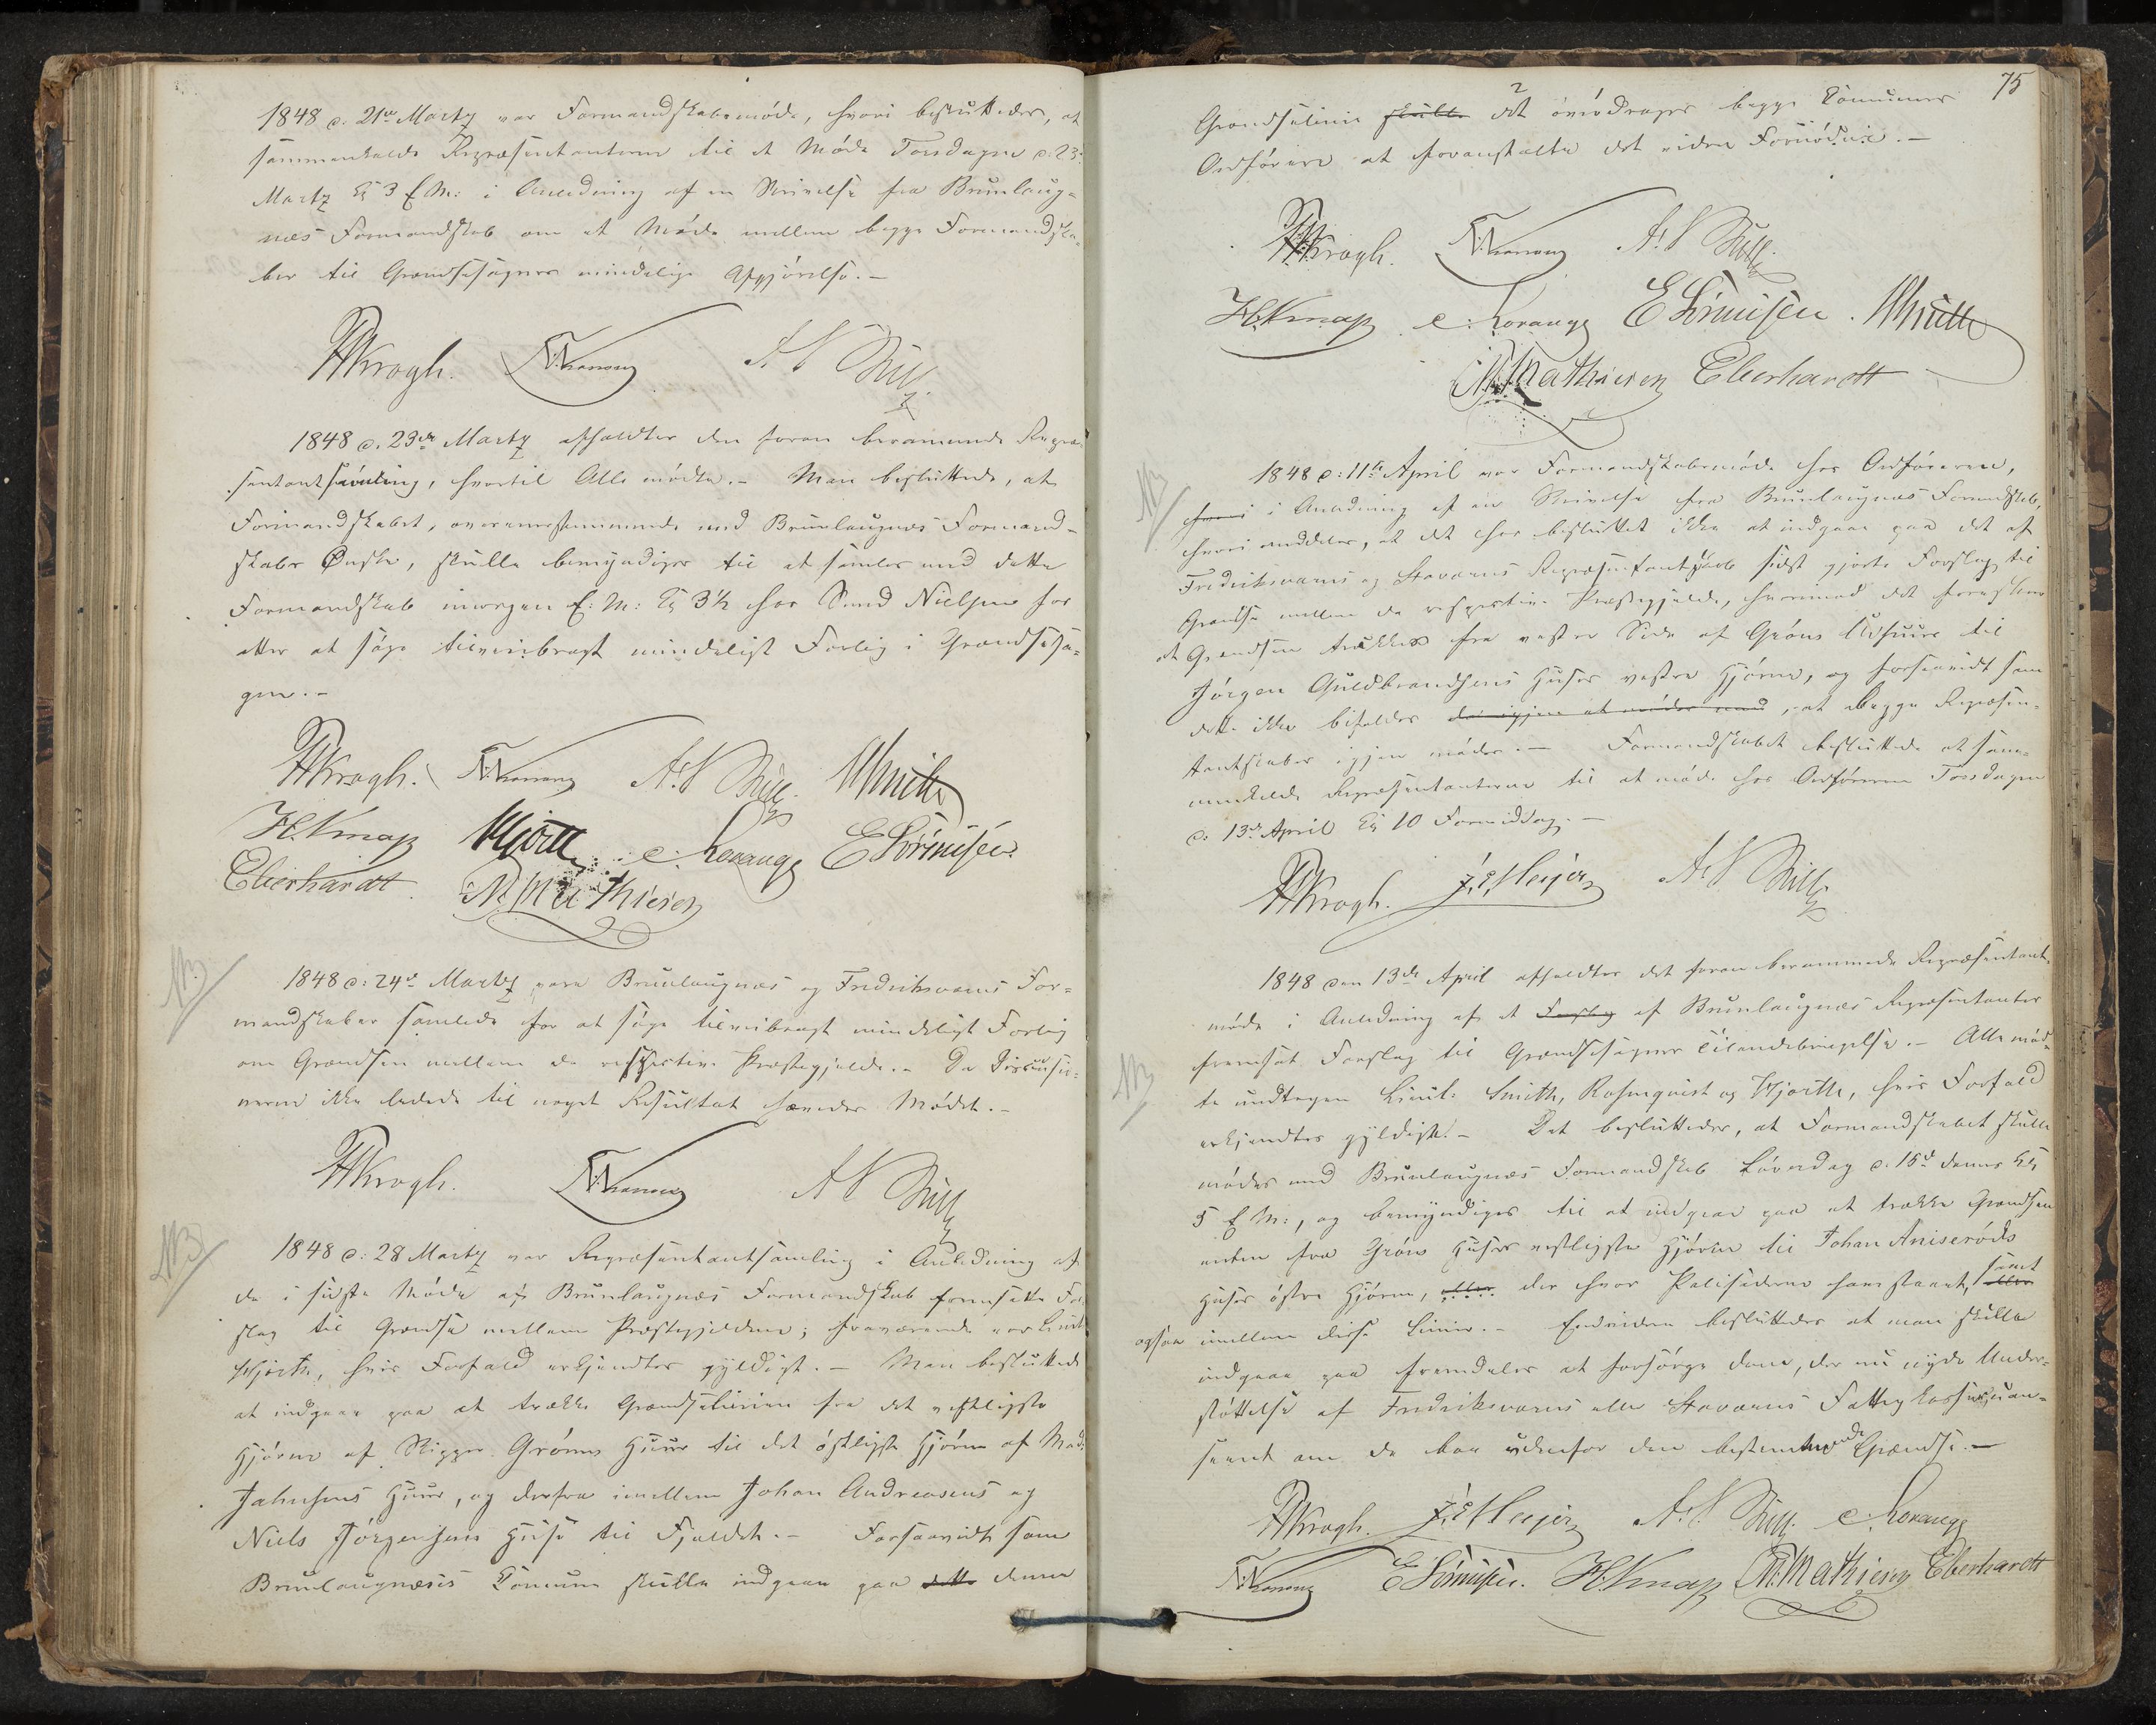 1848 d. 21de Martz var Formandskabsmøde, hvori besluttedes, at
sammenkalde Repræsentanterne til et Møde Torsdagen d. 23de
Martz Kl 3 E.M: i Anledning af en Skrivelse fra Brunlaug-
næs Formandskab om et Møde mellem begge Formandska-
ber til Grændsesagens mindelige Afgjørelse.-
Krogh. A S
1848 d. 23de Martz afholdtes den foran berammede Repræ-
sentantsamling, hvortil Alle mødte.- Man besluttede, at
Formandskabet, overensstemmende med Brunlaugnæs Formand-
skabs Ønske, skulle bemyndiges til at samles med dette
Formandskab imorgen E: M: Kl 3½ hos Sund Nielsen for
atter at søge tilveiebragt mindeligt Forlig i Grændsesa-
gen.-
Krogh. A. S Smith
H. Knap Hjorth c. Lorange E Sørensen.
Eberhardt. M. Mathiesen
NB
1848 d: 24de Martz vare Brunlaugnæs og Fredriksværns For-
mandskaber samlede for at søge tilveiebragt mindeligt Forlig
om Grændsen mellem de respective Præstegjelde.- Da Discussio-
nerne ikke ledede til noget Resultat hævedes Mødet.-
Krogh. A S
NB
1848 d: 28 Martz var Repræsentantsamling i Anledning af
de i sidste Møde af Brunlaugnæs Formandskab fremsatte For-
slag til Grændse mellem Præstegjeldene; fraværende var Lieut:
Hjorth, hvis Forfald erkjendtes gyldigt.- Man besluttede
at indgaae paa at trække Grændselinien fra det vestligste
Hjørne af Skipper Grøns Huus til det østligste Hjørne af Mads
Jahnsens Huus, og derfra imellem Johan Andreasens og
Niels Jørgensens Huse til Fjeldet.- Forsaavidt som
Brunlaugnæses Comune skulle indgaae paa dette denne
75
Grændselinie skulle 2 det overdrages begge Communers
Ordførere at foranstalte det videre Fornødne.-
Krogh. A. S
H. Knap c. Lorange E Sørensen. Smith
M. Mathiesen Eberhardt
NB
1848 d: 11te April var Formandskabsmøde hos Ordføreren,
hvori i Anledning af en Skrivelse fra Brunlaugnæs Formandskab,
hvori meddeles, at det har besluttet ikke at indgaae paa det af
Fredriksværns og Staværns Repræsentantskab sidst gjorte Forslag til
Grændse mellem de respective Præstegjelde, hvorimod det foreslaaer
at Grændsen trækkes fra vestre Side af Grøns Udhuus til
Jørgen Guldbrandsens Huses vestre Hjørne, og forsaavidt som
dette ikke bifaldes da igjen at mødes med, at begge Repræsen-
tantskaber igjen mødes.- Formandskabet besluttede at sam-
menkalde Repræsentanterne til at møde hos Ordføreren Torsdagen
d. 13de April Kl 10 Formiddag.-
Krogh. Meyer A. S
NB
1848 den 13de April afholdtes det foran berammede Repræsentant-
møde i Anledning af et Forslag af Brunlaugnæs Repræsentanter
fremsat Forslag til Grændsesagens Tilendebringelse.- Alle mød-
te undtagen Lieut: Smith, Rosenquist og Hjorth, hvis Forfald
erkjendtes gyldigt.- Det besluttedes, at Formandskabet skulle
mødes med Brunlaugnæs Formandskab Løverdag d. 15de dennes Kl
5 E M:, og bemyndiges til at indgaae paa at trække Grændsen
enten fra Grøns Huses vestligste Hjørne til Johan Aniserøds
Huses østre Hjørne, eller der hvor Palisaderne have staaet, samt eller
ogsaa imellem disse Linier.- Endvidere besluttedes at man skulle
indgaae paa fremdeles at forsørge dem, der nu nyde Under-
støttelse af Fredriksværns eller Staværns Fattigkasse, uan-
seet om de boe udenfor den bestemmende Grændse.-
Krogh. Meyer A. S c Lorange
E Sørensen. H. Knap M. Mathiesen Eberhardt